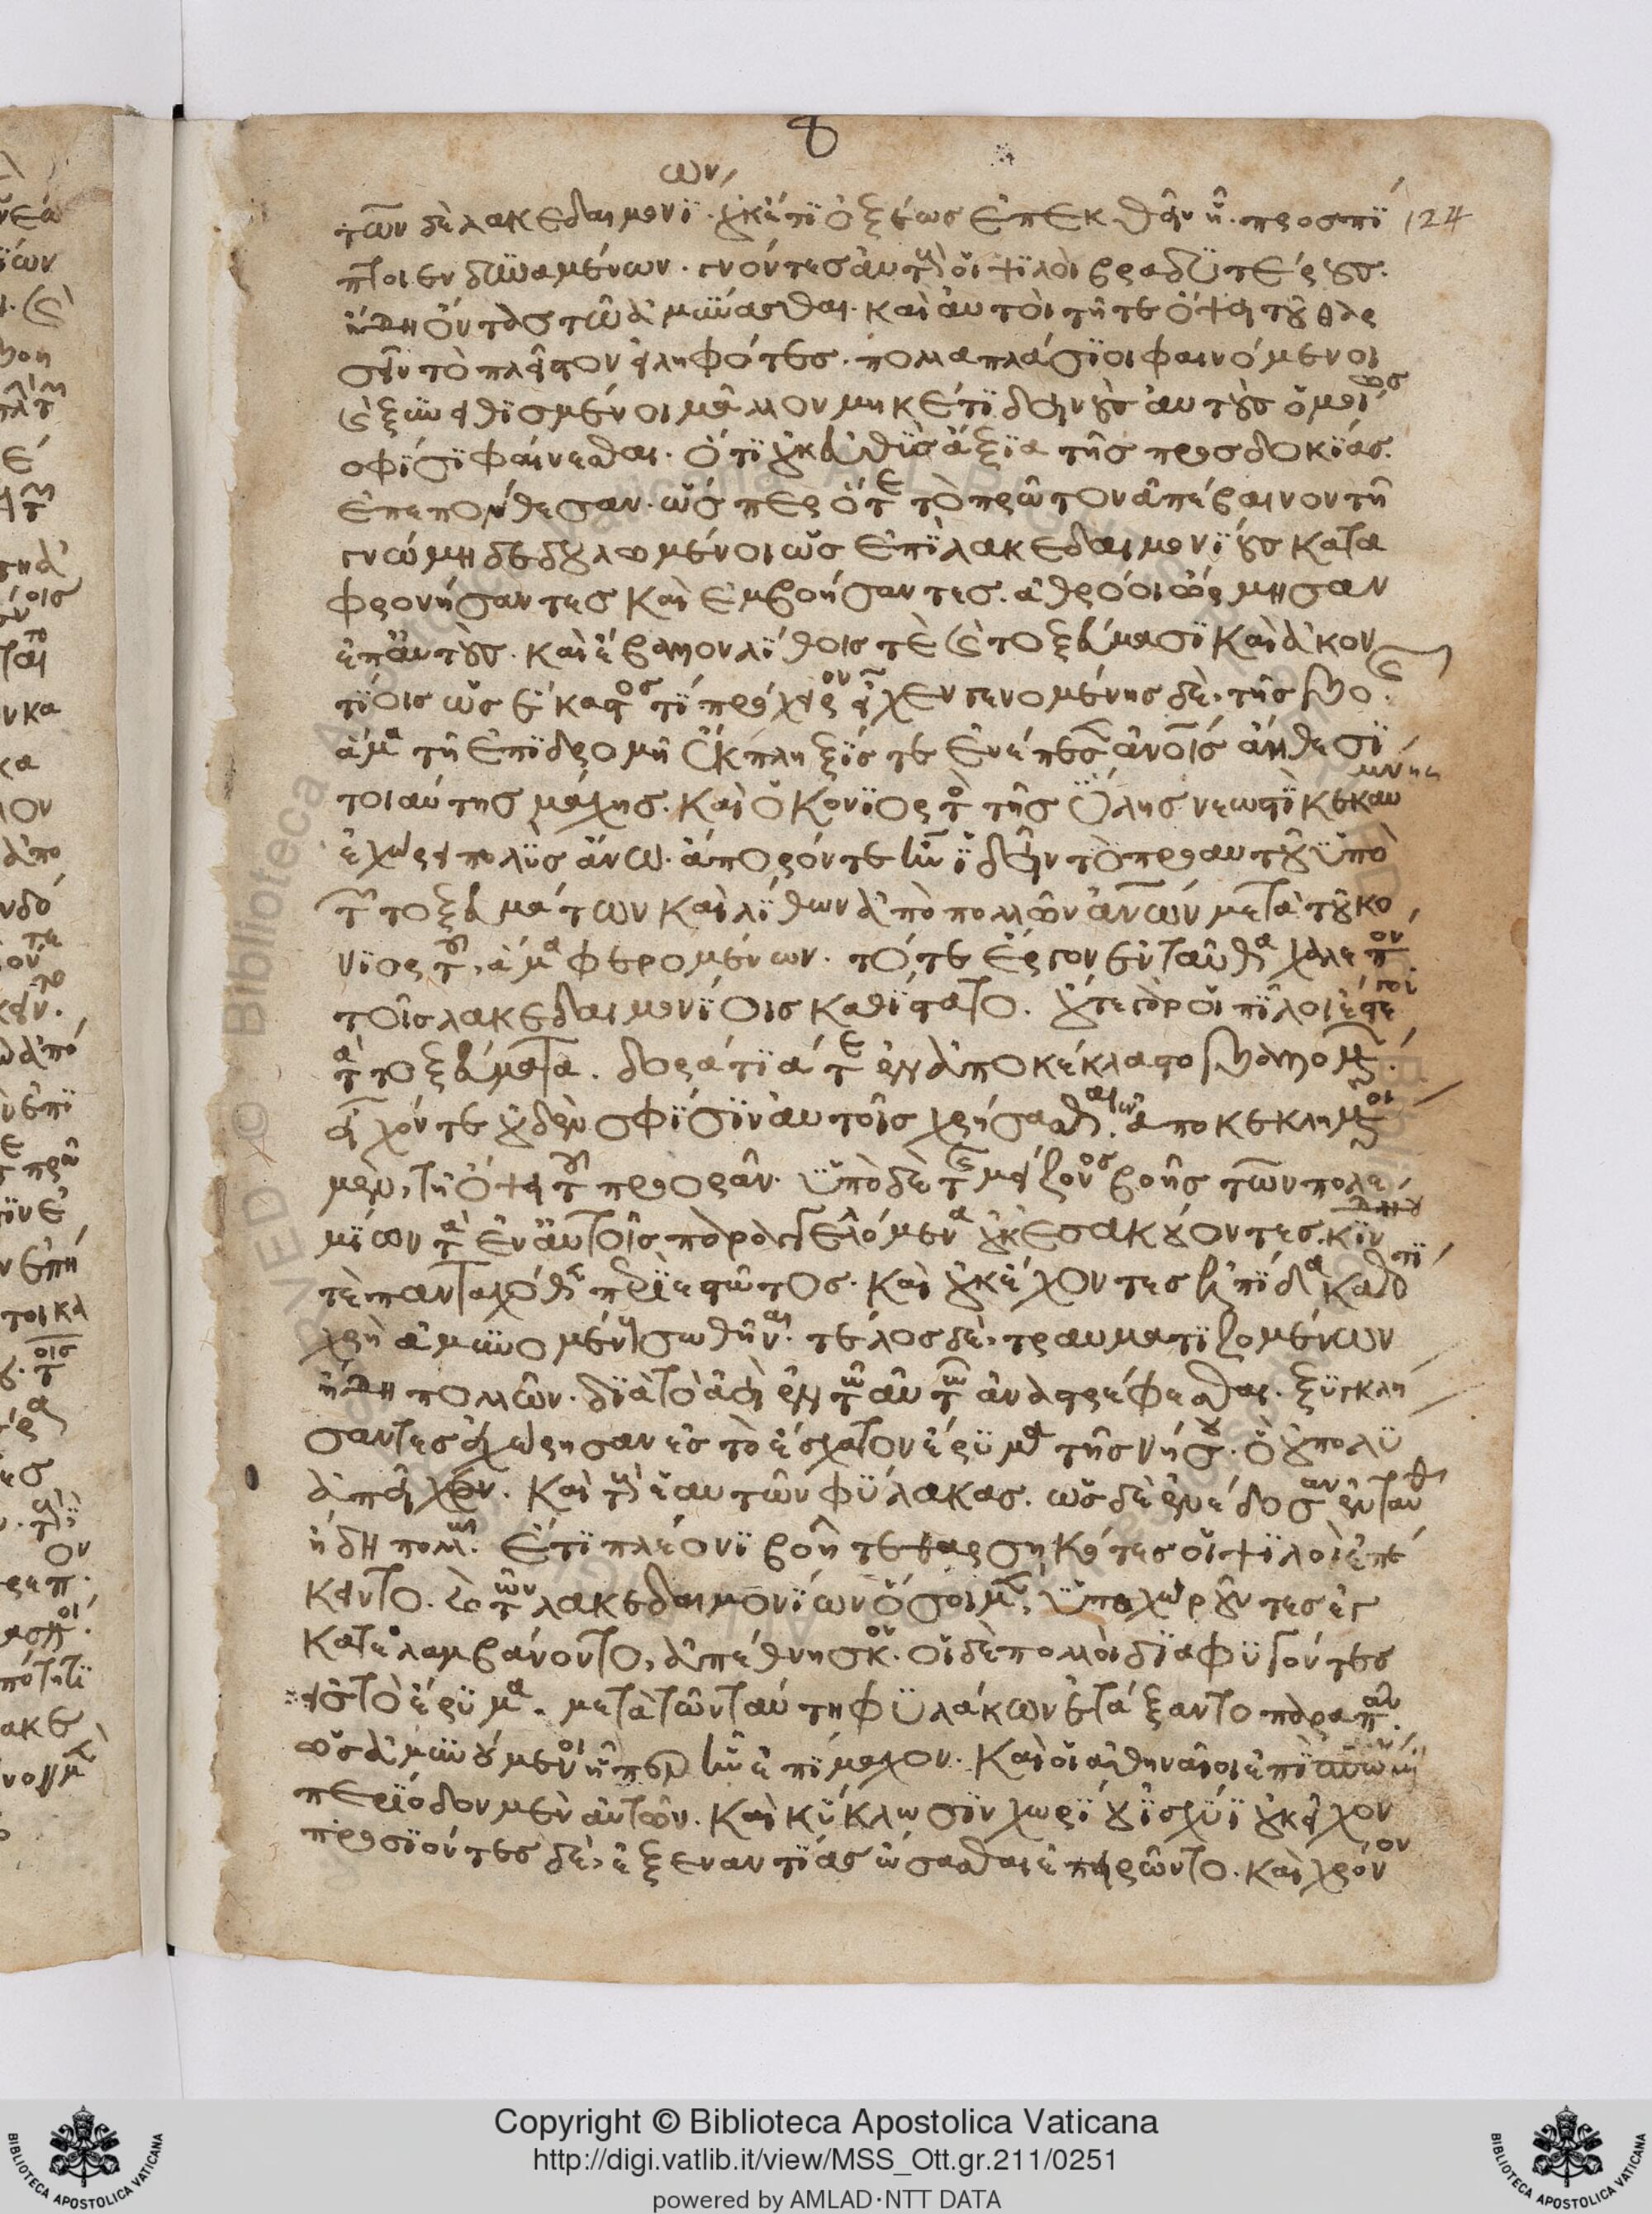 ων
τῶν δὲ λακεδαιμονΐ. οὐκέτϊ ὀξέως ἐπεκθεῖν ἧ. προσπΐ 124
πτοιεν δϋναμένων. γνόντες αὐτοὺς οἱ ψϊλοὶ βραδϋτέρους.
ἤδη ὄντας τῶ ἀμϋνασθαι. καὶ αὐτοὶ τῆ τε ὄψει τοῦ θαρ
σεῖν τὸ πλεῖστον εἰληφότες. πολλαπλάσϊοι φαινόμενοι
καὶ ξϋνειθϊσμένοι μᾶλλον μηκέτϊ δεινοὺς αὐτοὺς ὁμοίως
σφίσϊ φαίνεσθαι. ὅτϊ οὐκ εὐθϋς ἄξϊα τῆς προσδοκϊας.
ἐπεπόνθεσαν. ὥσπερ ὅτε τὸ πρῶτον ἀπέβαινον τῆ
γνώμη δεδουλωμένοι ὡς ἐπϊ λακεδαιμονϊους κατα
φρονήσαντες καὶ ἐμβοήσαντες. ἀθρόοι ὥρμησαν
ἐπ' αὐτοὺς. καὶ ἔβαλλον λΐθοις τὲ καὶ τοξεύμασϊ καὶ ἀκον
τΐοις ὡς ἕκαστός τϊ πρόχειρον εἶχεν γενομένης δὲ τῆς βοῆς
ἅμα τῆ ἐπϊδρομῆ ἔκπληξϊς τε ἐνέπεσεν ἀνοις ἀήθεσϊ
τοιαύτης μάχης. καὶ ὁ κονϊορτὸς τῆς ὕλης νεωστϊ κεκαυ
μένης
ἐχώρει πολϋς ἄνω. ἄπορόν τε ἦν ϊδεῖν τὸ πρὸ αυτοῦ ϋπὸ
τῶν τοξευμάτων καὶ λΐθων ἀπὸ πολλῶν ἀνων μετὰ τοῦ κο
νϊορτοῦ, ἅμα φερομένων. τό τε ἔργον ἐνταῦθα χαλεπὸν
τοῖς λακεδαιμονΐοις καθΐστατο. οὔτε γὰρ οἱ πῖλοι ἔστε
γον
τὰ τοξεύματα. δοράτϊά τε ἐναποκέκλαστο βαλλομένων.
εἶχόν τε οὐδὲν σφϊσϊν αὐτοῖς χρήσασθαι. ἀποκεκλημένοι
μὲν, τῆ ὄψει τοῦ προορᾶν. ϋπὸ δὲ τῆς μείζονος βοῆς τῶν πολε
μΐων τὰ ἐν αὐτοῖς παραγγελλόμενα οὐκ ἐσακούοντες. κιν
δύνου
τὲ πανταχόθεν περιεστῶτος. καὶ οὐκ ἔχοντες ἐλπΐδα καθότϊ
χρὴ ἀμϋνομένους σωθῆναι. τέλος δὲ, τραυματϊζομένων
ἤδη πολλῶν. δϊὰ τὸ ἀεὶ ἐν τῶ αὐτῶ ἀναστρέφεσθαι. ξϋγκλη
σαντες ἐχώρησαν ἐς τὸ ἔσχατον ἔρϋμα τῆς νήσου. ὃ οὐ πολϋ
ἀπεῖχεν. καὶ τοὺς ἑαυτῶν φϋλακας. ὡς δὲ ἐνέδοσαν ἐνταῦθα
ἤδη πολλῶ. ἔτϊ πλέονϊ βοῆ τεθαρσηκότες οἱ ψϊλοὶ ἐπέ
κειντο. καὶ τῶν λακεδαιμονΐων ὅσοι μὲν, ϋποχωροῦντες ἐγ
κατελαμβάνοντο, ἀπέθνησκον. οἱ δὲ πολλοὶ δϊαφϋγόντες
ἐς τὸ ἔρϋμα. μετὰ τῶν ταύτη φϋλάκων ἐτάξαντο παρὰ πᾶν.
ὡς ἀμϋνούμενοι ἧπερ ἦν ἐπΐμαχον. καὶ οἱ ἀθηναῖοι ἐπϊσπώμενοι
περΐοδον μὲν αὐτῶν. καὶ κϋκλωσϊν χωρΐου ϊσχϋϊ οὐκ εἶχον
προσϊόντες δὲ, ἐξεναντΐας ὤσασθαι ἐπειρῶντο. καὶ χρόνον
Copyright © Biblioteca Apostolica Vaticana
http://digi.vatlib.it/view/MSS_Ott.gr.211/0251
powered by AMLAD·NTT DATA
BIBLIOTECA APOSTOLICA VATICANA
BIBLIOTECA APOSTOLICA VATICANA